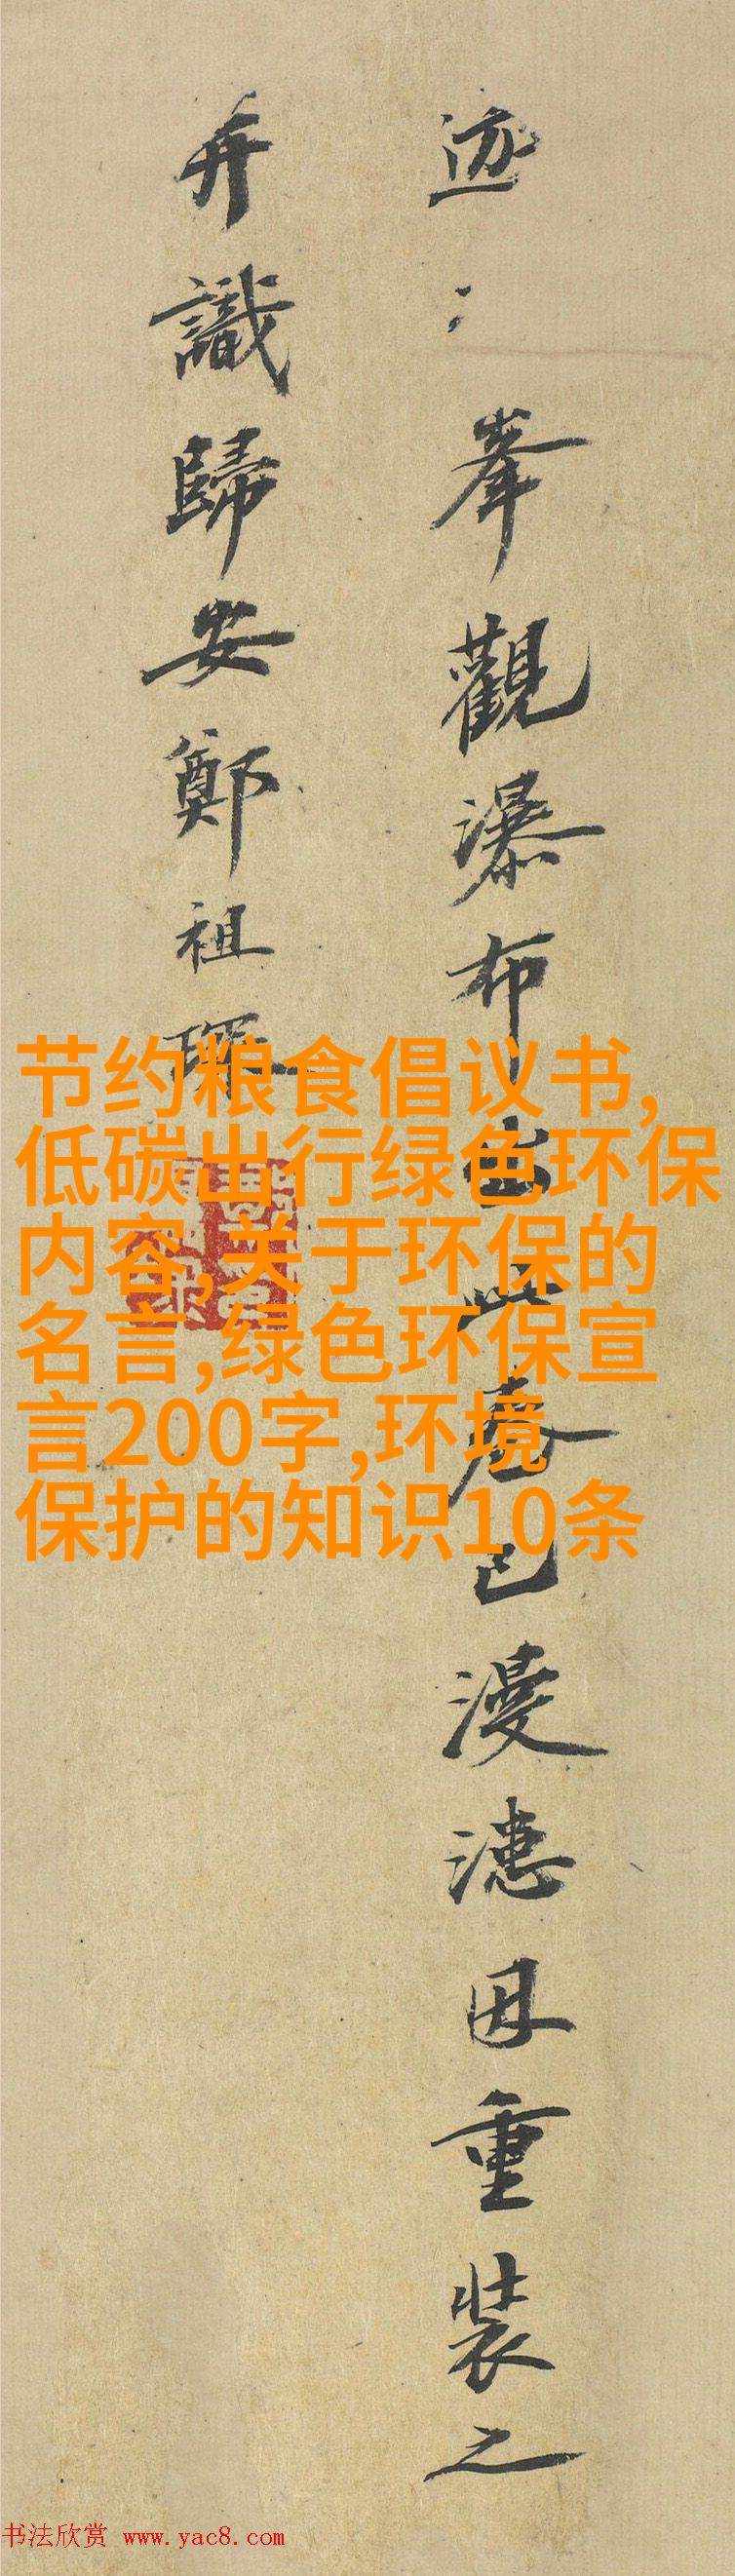 迹〻峯觀瀑布出此卷已漫漶因重裝之
并識歸安鄭祖琛
节约粮食倡议书,
低碳出行绿色环保
内容,关于环保的
名言,绿色环保宣
言200字,环境
保护的知识10条
书法欣赏 www.yac8.com